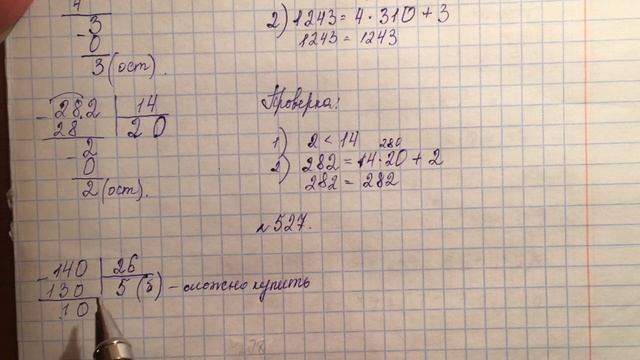 4
- 3
0
3 (ост).
2) 1243 = 4 · 310 + 3
1243 = 1243
- 282 | 14
28 | 20
- 2
0
2 (ост).
Проверка:
1) 2 < 14
280
2) 282 = 14 · 20 + 2
282 = 282
№ 527.
- 140 | 26
130 | 5 (б) – можно купить
10